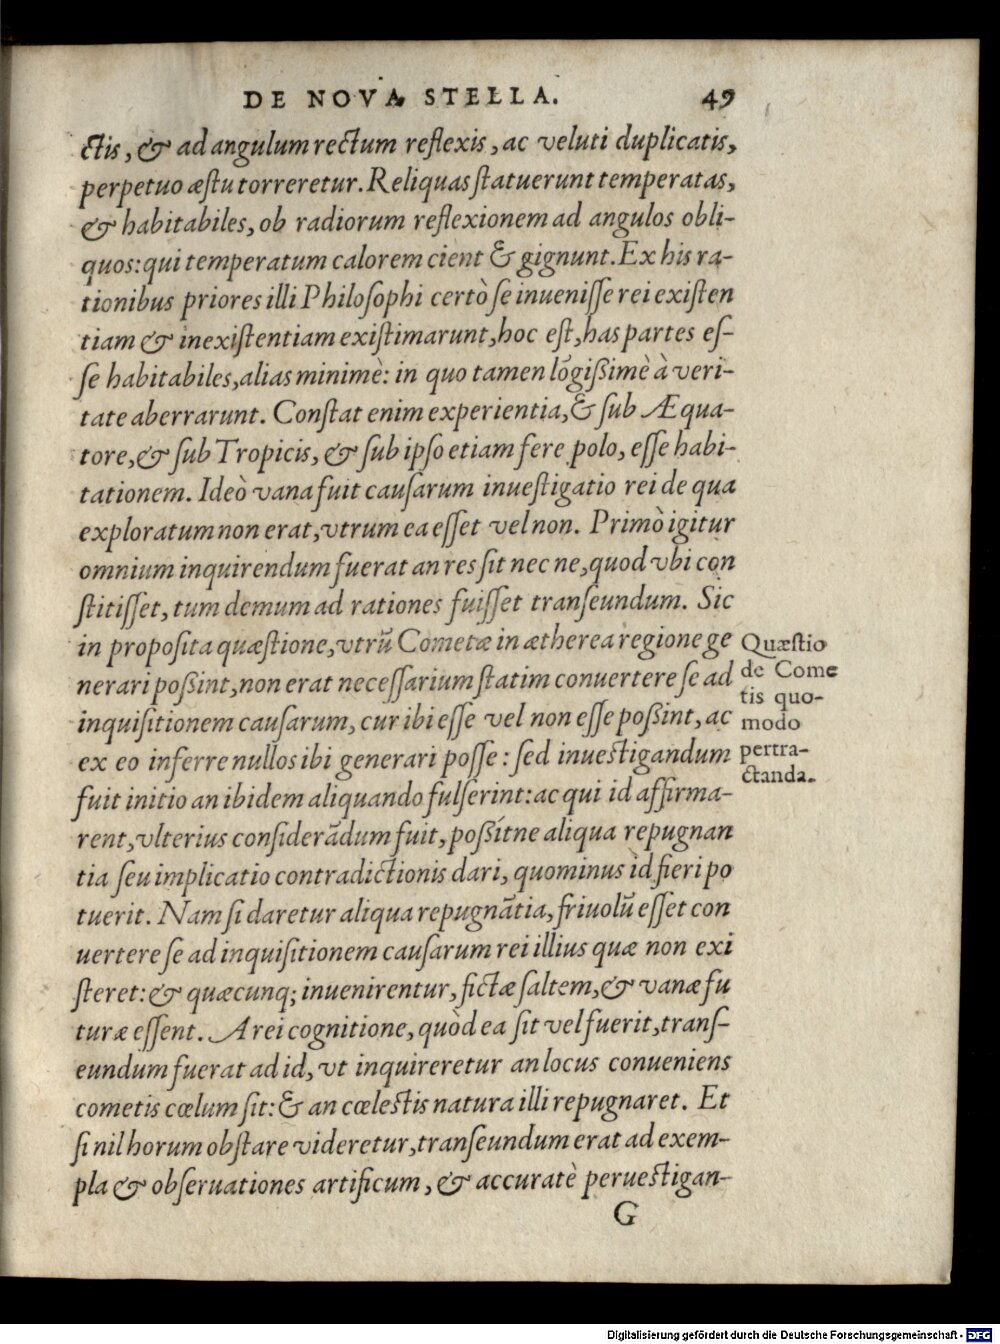 DE NOVA STELLA. 49
ctis, & ad angulum rectum reflexis, ac veluti duplicatis,
perpetuo æstu torreretur. Reliquas statuerunt temperatas,
& habitabiles, ob radiorum reflexionem ad angulos obli-
quos: qui temperatum calorem cient & gignunt. Ex his ra-
tionibus priores illi Philosophi certò se inuenisse rei existen
tiam & inexistentiam existimarunt, hoc est, has partes es-
se habitabiles, alias minimè: in quo tamen lōgißimè à veri-
tate aberrarunt. Constat enim experientia, & sub Æqua-
tore, & sub Tropicis, & sub ipso etiam fere polo, esse habi-
tationem. Ideò vana fuit causarum inuestigatio rei de qua
exploratum non erat, vtrum ea esset vel non. Primò igitur
omnium inquirendum fuerat an res sit nec ne, quod vbi con
stitisset, tum demum ad rationes fuisset transeundum. Sic
in proposita quæstione, vtrū Cometæ in ætherea regione ge
nerari poßint, non erat necessarium statim conuertere se ad
inquisitionem causarum, cur ibi esse vel non esse poßint, ac
ex eo inferre nullos ibi generari posse: sed inuestigandum
fuit initio an ibidem aliquando fulserint: ac qui id affirma-
rent, vlterius considerādum fuit, poßítne aliqua repugnan
tia seu implicatio contradictionis dari, quominus id fieri po
tuerit. Nam si daretur aliqua repugnātia, friuolū esset con
uertere se ad inquisitionem causarum rei illius quæ non exi
steret: & quæcunq; inuenirentur, fictæ saltem, & vanæ fu
turæ essent. A rei cognitione, quòd ea sit vel fuerit, trans-
eundum fuerat ad id, vt inquireretur an locus conueniens
cometis cœlum sit: & an cœlestis natura illi repugnaret. Et
si nil horum obstare videretur, transeundum erat ad exem-
pla & obseruationes artificum, & accuratè peruestigan-
G
Quæstio
de Come
tis quo-
modo
pertra-
ctanda.
Digitalisierung gefördert durch die Deutsche Forschungsgemeinschaft - DFG